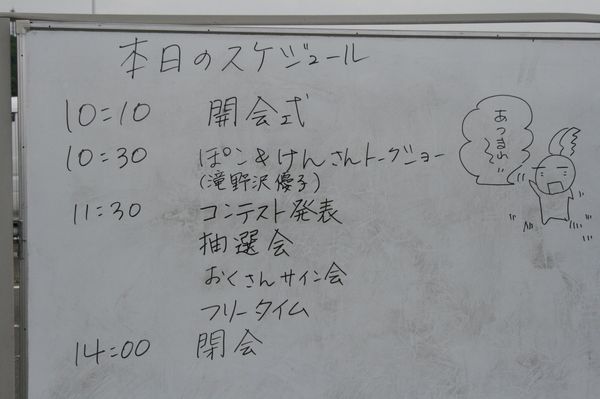 本日のスケジュール
10:10 開会式
10:30 ぽン&けんさんトークショー
(滝野沢優子)
11:30 コンテスト発表
抽選会
おくさんサイン会
フリータイム
14:00 閉会
あつまれ〜